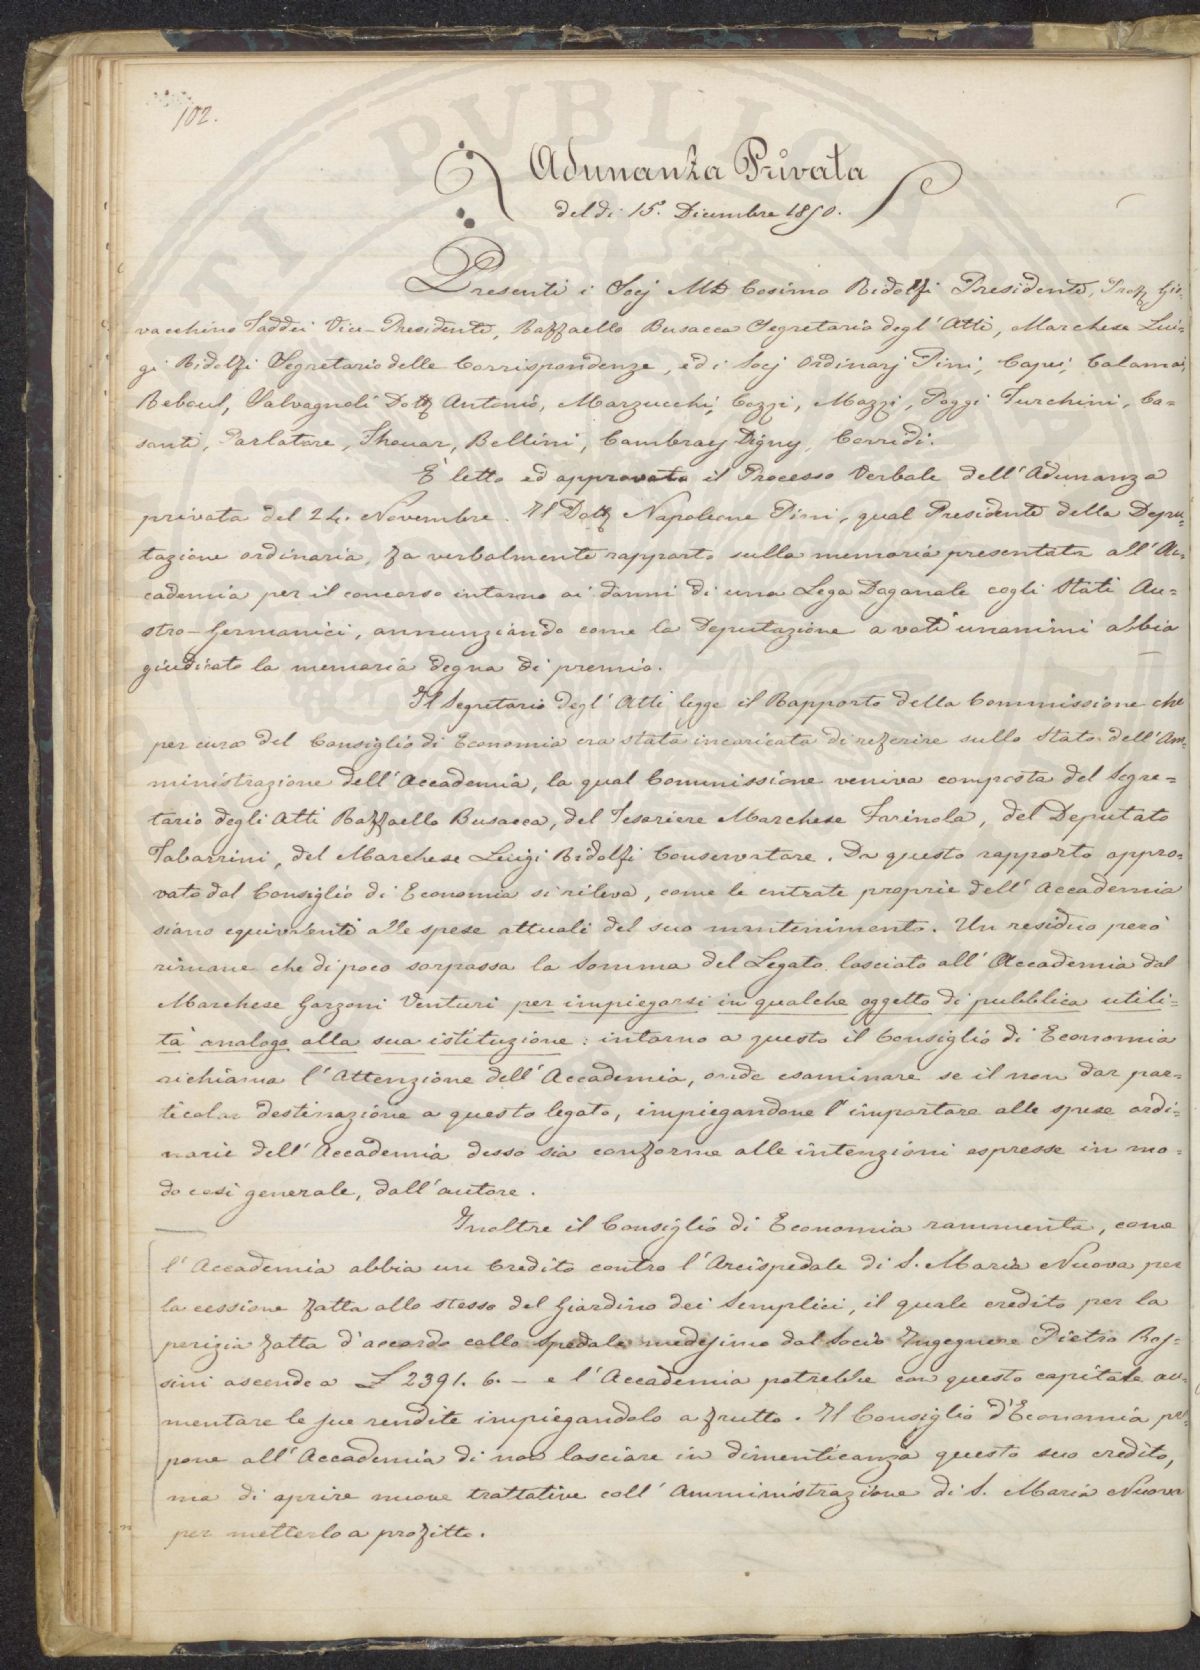 102.
Adunanza Privata
del dì 15. Dicembre 1850.
Presenti i Socj Mse Cosimo Ridolfi Presidente, Proff Gio-
vacchino Taddei Vice-Presidente, Raffaello Busacca Segretario degl'Atti, Marchese Lui-
gi Ridolfi Segretario delle Corrispondenze, ed i Socj Ordinarj Pini, Capei, Calamai,
Reboul, Salvagnoli Dott Antonio, Marzucchi, Cozzi, Mazzi, Poggi Turchini, Ca-
santi, Parlatore, Thouar, Bellini, Cambray Digny, Corridi.
È letto ed approvato il Processo Verbale dell'Adunanza
privata del 24. Novembre. Il Dott Napoleone Pini, qual Presidente della Depu-
tazione ordinaria, fa verbalmente rapporto sulla memoria presentata all'Ac-
cademia per il concorso intorno ai danni di una Lega Doganale cogli Stati Au-
stro-Germanici, annunziando come la Deputazione a voti unanimi abbia
giudicato la memoria degna di premio.
Il Segretario degl'Atti legge il Rapporto della Commissione che
per cura del Consiglio di Economia era stata incaricata di referire sullo Stato dell'Am-
ministrazione dell'Accademia, la qual Commissione veniva composta del Segre-
tario degli Atti Raffaello Busacca, del Tesoriere Marchese Farinola, del Deputato
Tabarrini, del Marchese Luigi Ridolfi Conservatore. Da questo rapporto appro-
vato dal Consiglio di Economia si rileva, come le entrate proprie dell'Accademia
siano equivalenti alle spese attuali del suo mantenimento. Un residuo però
rimane che di poco sorpassa la Somma del Legato lasciato all'Accademia dal
Marchese Garzoni Venturi per impiegarsi in qualche oggetto di pubblica utili-
tà analogo alla sua istituzione: intorno a questo il Consiglio di Economia
richiama l'Attenzione dell'Accademia, onde esaminare se il non dar par-
ticolar destinazione a questo legato, impiegandone l'importare alle spese ordi-
narie dell'Accademia desso sia conforme alle intenzioni espresse in mo-
do così generale, dall'autore.
Inoltre il Consiglio di Economia rammenta, come
l'Accademia abbia un Credito contro l'Arcispedale di S. Maria Nuova per
la cessione fatta allo stesso del Giardino dei Semplici, il quale credito per la
perizia fatta d'accordo collo Spedale medesimo dal Socio Ingegnere Pietro Ros-
sini ascende a £ 2391. 6. – e l'Accademia potrebbe con questo capitale au-
mentare le sue rendite impiegandolo a frutto. Il Consiglio d'Economia pro-
pone all'Accademia di non lasciare in dimenticanza questo suo credito,
ma di aprire nuove trattative coll'Amministrazione di S. Maria Nuova
per metterlo a profitto.